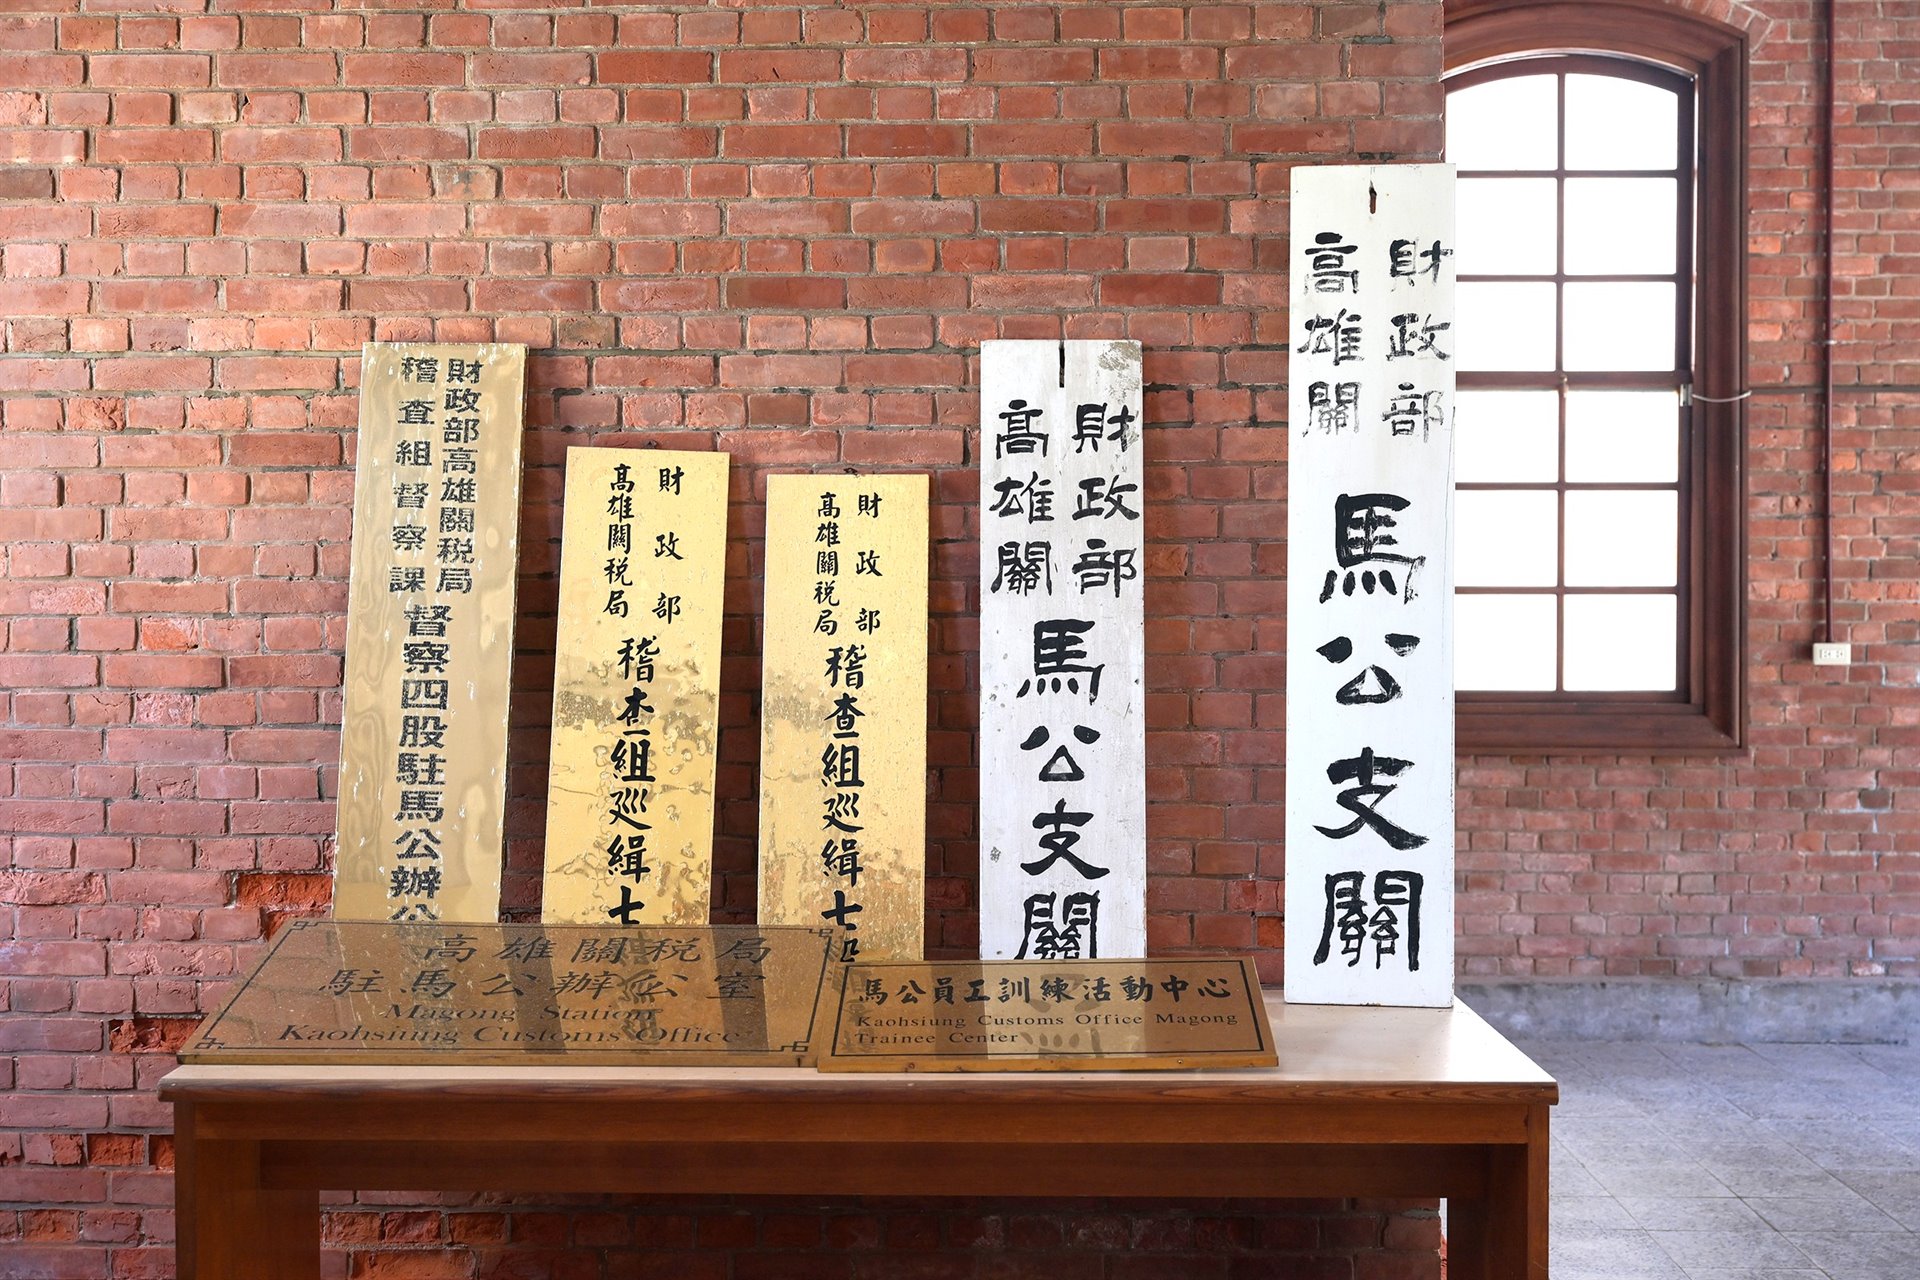 財政部高雄關税局
稽查組督察課
督察四股駐馬公辦公
財政部
高雄關税局
稽查組巡緝七
財政部
高雄關税局
稽查組巡緝七
財政部
高雄關
馬公支關
財政部
高雄關
馬公支關
高雄關税局
駐馬公辦公室
Magong Station
Kaohsiung Customs Office
馬公員工訓練活動中心
Kaohsiung Customs Office Magong
Trainee Center